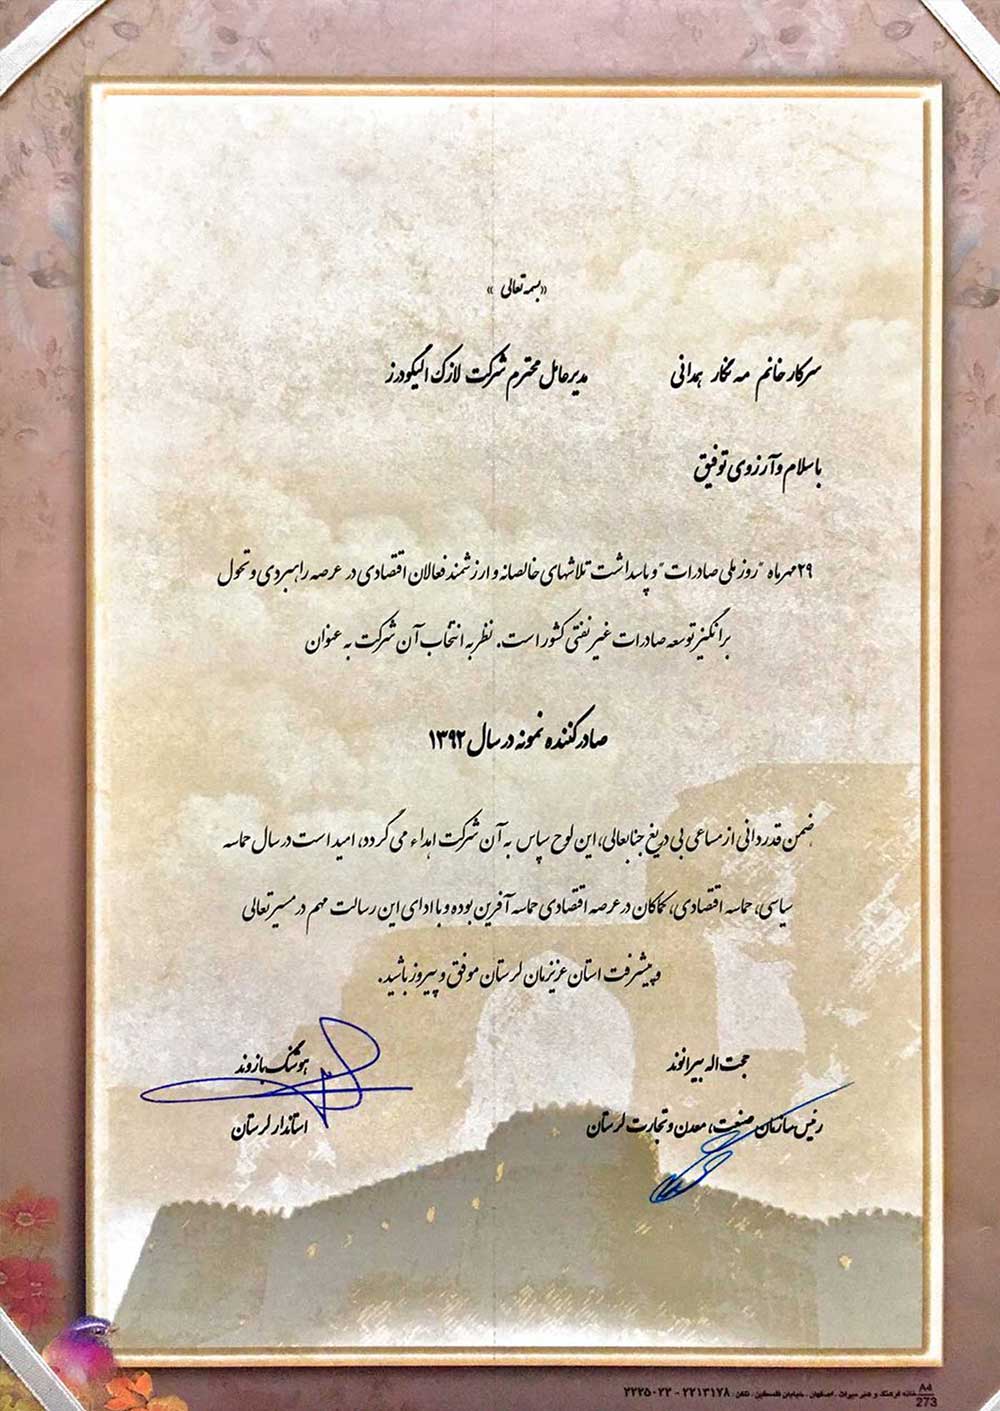 «بسمه تعالی»
سرکار خانم مه نگار همدانی مدیرعامل محترم شرکت لازک الیگودرز
باسلام و آرزوی توفیق
۲۹ مهرماه "روز ملی صادرات" و پاسداشت تلاشهای خالصانه و ارزشمند فعالان اقتصادی در عرصه راهبردی و تحول
برانگیز توسعه صادرات غیر نفتی کشور است. نظر به انتخاب آن شرکت به عنوان
صادر کننده نمونه در سال ۱۳۹۲
ضمن قدردانی از مساعی بی دریغ جنابعالی، این لوح سپاس به آن شرکت اهداء می گردد، امید است در سال حماسه
سیاسی، حماسه اقتصادی، کماکان در عرصه اقتصادی حماسه آفرین بوده و با ادای این رسالت مهم در مسیر تعالی
و پیشرفت استان عزیزمان لرستان موفق و پیروز باشید.
حجت اله بیرانوند هوشنگ بازوند
رئیس سازمان صنعت، معدن و تجارت لرستان استاندار لرستان
A4
خانه فرهنگ و هنر میراث . اصفهان . خیابان فلسطین . تلفن: ۲۲۱۳۱۷۸ - ۲۲۲۵۰۲۳
273